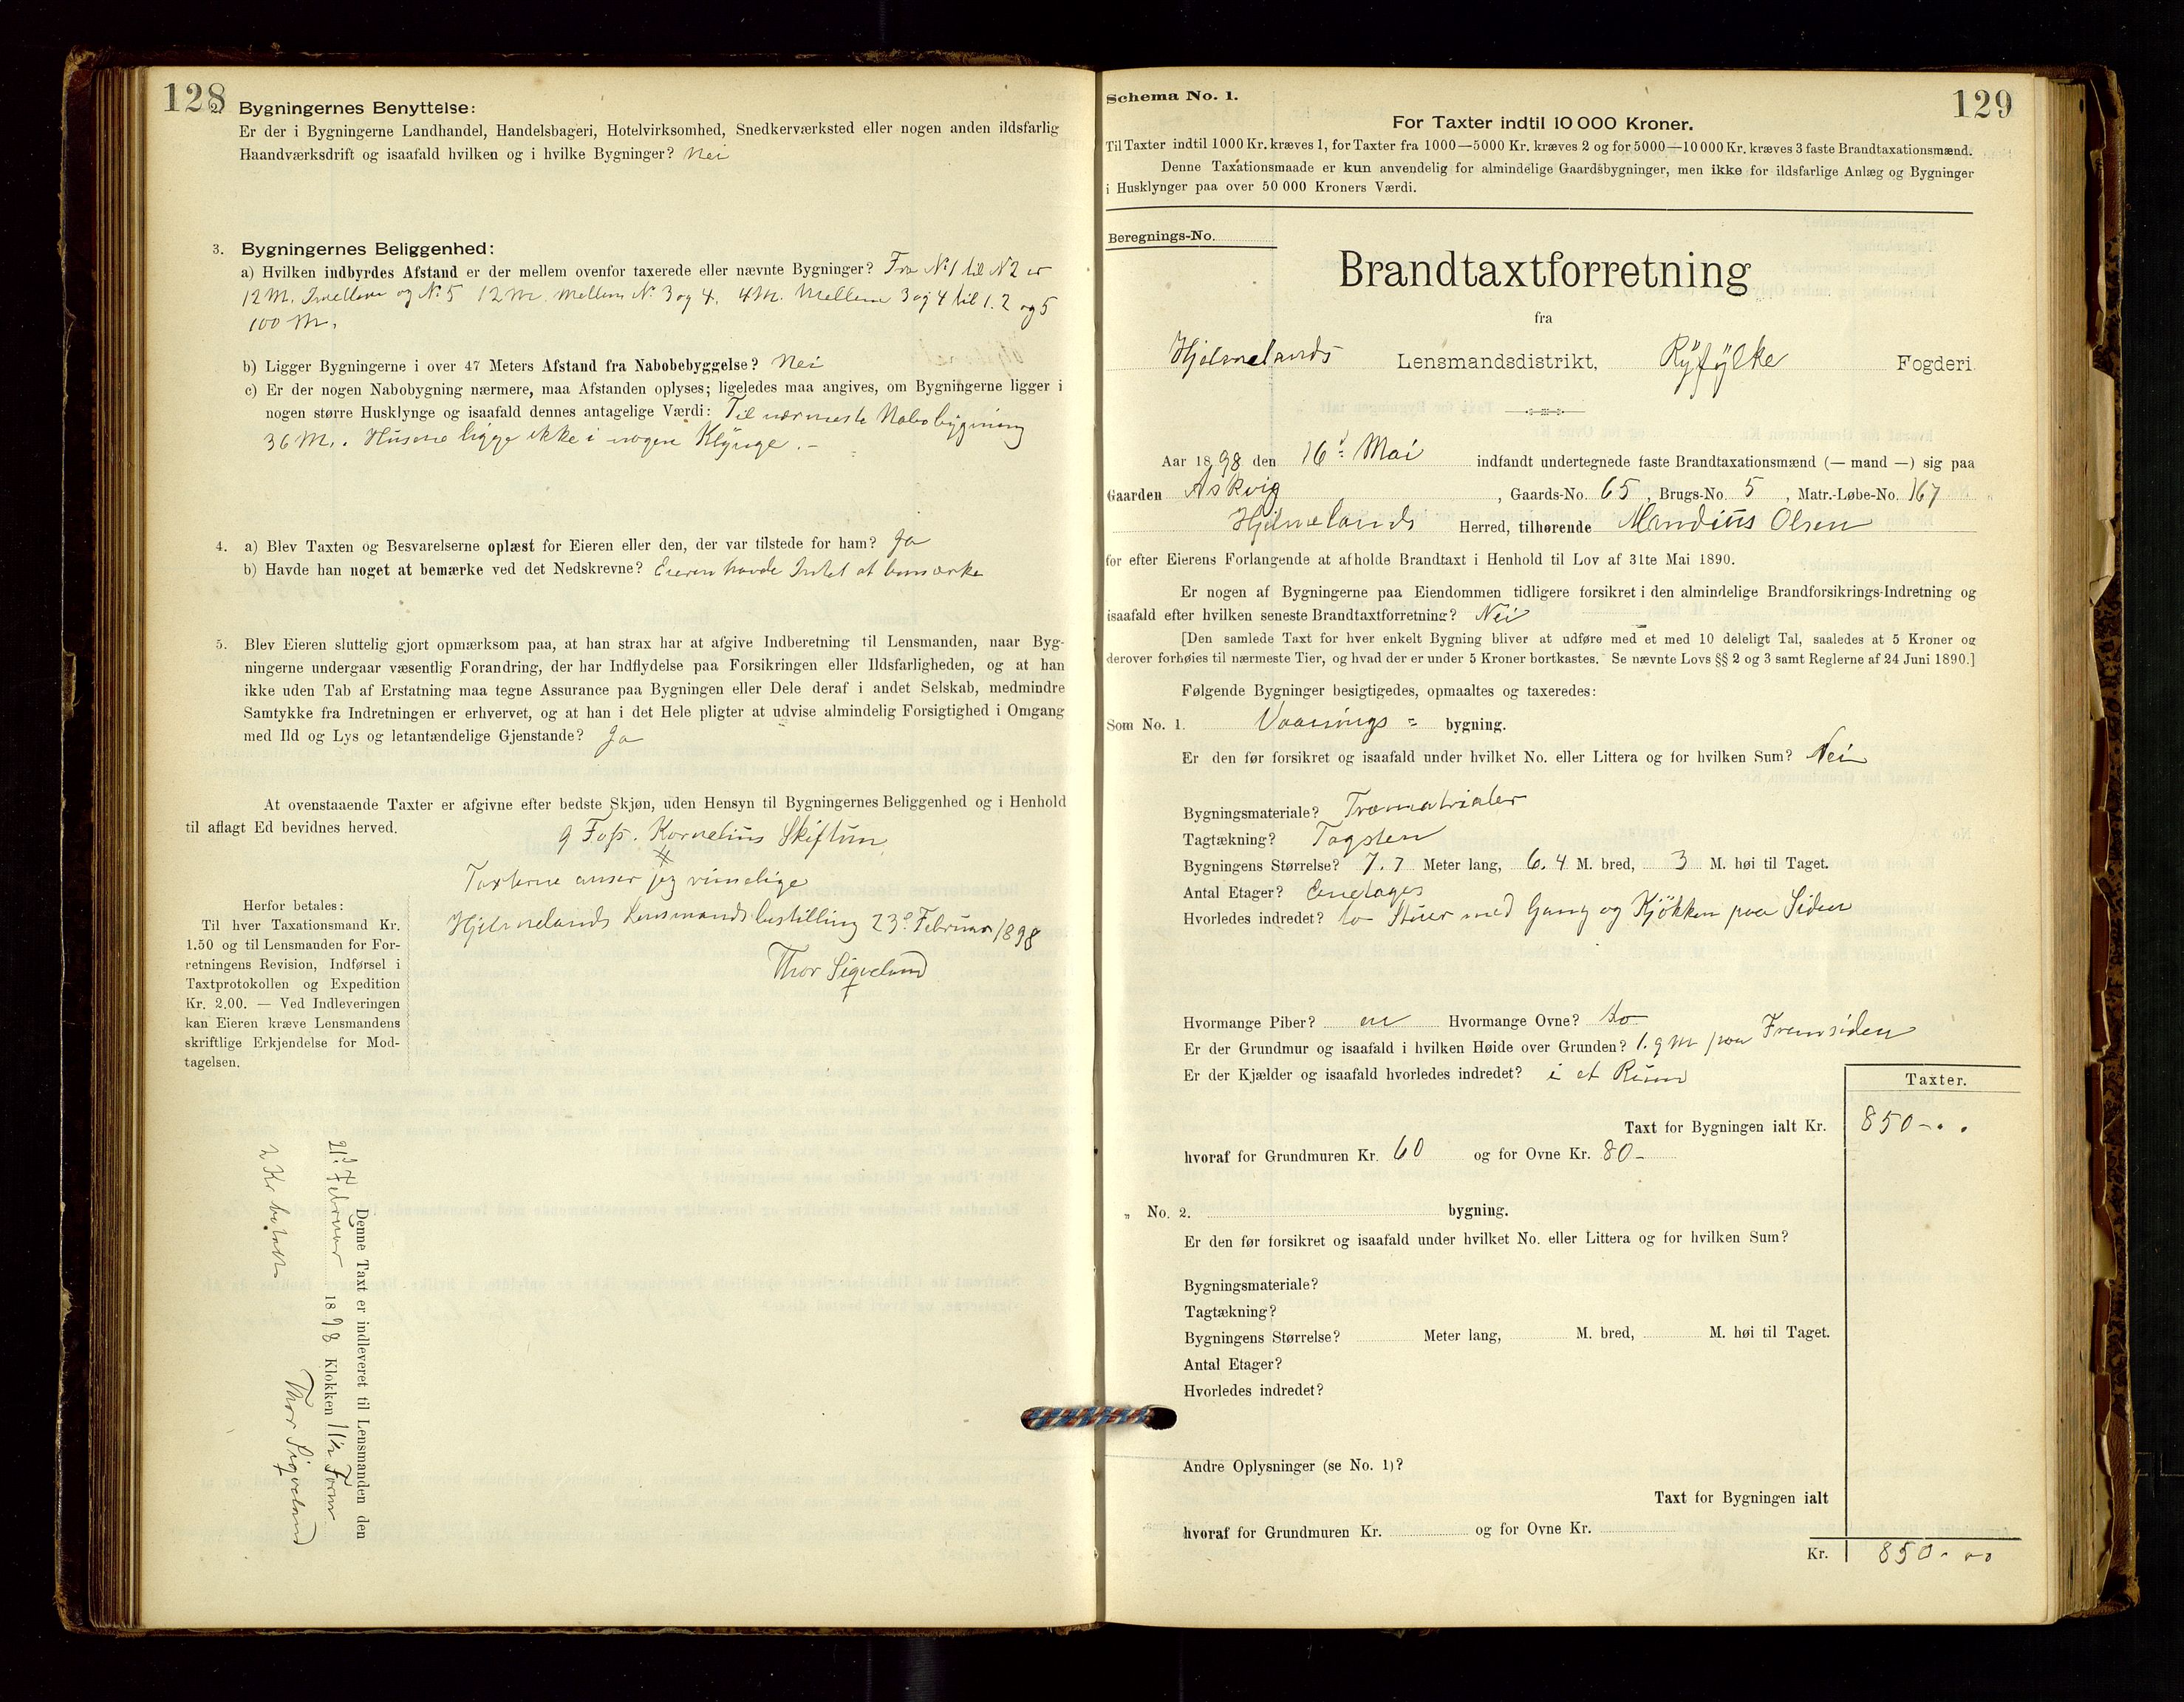 128
2. Bygningernes Benyttelse:
Er der i Bygningerne Landhandel, Handelsbageri, Hotelvirksomhed, Snedkerværksted eller nogen anden ildsfarlig
Haandværksdrift og isaafald hvilken og i hvilke Bygninger? Nei
3. Bygningernes Beliggenhed:
a) Hvilken indbyrdes Afstand er der mellem ovenfor taxerede eller nævnte Bygninger? Fra No 1 til N 2 er
12 M. Imellem og No 5 12 M. mellem No 3 og 4. 4 M. Mellem 3 og 4 til 1. 2 og 5
100 M.
b) Ligger Bygningerne i over 47 Meters Afstand fra Nabobebyggelse? Nei
c) Er der nogen Nabobygning nærmere, maa Afstanden oplyses; ligeledes maa angives, om Bygningerne ligger i
nogen større Husklynge og isaafald dennes antagelige Værdi: Til nærmeste Nabobygning
36 M. Husene ligge ikke i nogen Klynge. -
4. a) Blev Taxten og Besvarelserne oplæst for Eieren eller den, der var tilstede for ham? Ja
b) Havde han noget at bemærke ved det Nedskrevne? Eieren havde Intet at bemærke
5. Blev Eieren sluttelig gjort opmærksom paa, at han strax har at afgive Indberetning til Lensmanden, naar Byg-
ningerne undergaar væsentlig Forandring, der har Indflydelse paa Forsikringen eller Ildsfarligheden, og at han
ikke uden Tab af Erstatning maa tegne Assurance paa Bygningen eller Dele deraf i andet Selskab, medmindre
Samtykke fra Indretningen er erhvervet, og at han i det Hele pligter at udvise almindelig Forsigtighed i Omgang
med Ild og Lys og letantændelige Gjenstande? Ja
At ovenstaaende Taxter er afgivne efter bedste Skjøn, uden Hensyn til Bygningernes Beliggenhed og i Henhold
til aflagt Ed bevidnes herved.
G Foss. Kornelius Skiftun
Taxterne anser jeg rimelige
Hjelmelands Lensmandsbestilling 23de Februar 1898
Thor Sigveland
Herfor betales:
Til hver Taxationsmand Kr.
1.50 og til Lensmanden for For-
retningens Revision, Indførsel i
Taxtprotokollen og Expedition
Kr. 2.00. — Ved Indleveringen
kan Eieren kræve Lensmandens
skriftlige Erkjendelse for Mod-
tagelsen.
Denne Taxt er indleveret til Lensmanden den
21d Februar 1898 Klokken 11 1/2 Form
Thor Sigveland
2 Kr betalt
129
Schema No. 1.
For Taxter indtil 10 000 Kroner.
Til Taxter indtil 1000 Kr. kræves 1, for Taxter fra 1000—5000 Kr. kræves 2 og for 5000—10 000 Kr. kræves 3 faste Brandtaxationsmænd.
Denne Taxationsmaade er kun anvendelig for almindelige Gaardsbygninger, men ikke for ildsfarlige Anlæg og Bygninger
i Husklynger paa over 50 000 Kroners Værdi.
Beregnings-No.
Brandtaxtforretning
fra
Hjelmelands Lensmandsdistrikt, Ryfylke Fogderi.
Aar 1898 den 16d Mai indfandt undertegnede faste Brandtaxationsmænd (— mand —) sig paa
Gaarden Askvig, Gaards-No. 65, Brugs-No. 5, Matr.-Løbe-No. 167
Hjelmelands Herred, tilhørende Mandius Olsen
for efter Eierens Forlangende at afholde Brandtaxt i Henhold til Lov af 31te Mai 1890.
Er nogen af Bygningerne paa Eiendommen tidligere forsikret i den almindelige Brandforsikrings-Indretning og
isaafald efter hvilken seneste Brandtaxtforretning? Nei
[Den samlede Taxt for hver enkelt Bygning bliver at udføre med et med 10 deleligt Tal, saaledes at 5 Kroner og
derover forhøies til nærmeste Tier, og hvad der er under 5 Kroner bortkastes. Se nævnte Lovs §§ 2 og 3 samt Reglerne af 24 Juni 1890.]
Følgende Bygninger besigtigedes, opmaaltes og taxeredes:
Som No. 1. Vaanings = bygning.
Er den før forsikret og isaafald under hvilket No. eller Littera og for hvilken Sum? Nei
Bygningsmateriale? Træmatrialer
Tagtækning? Tagsten
Bygningens Størrelse? 7.7 Meter lang, 6.4 M. bred, 3 M. høi til Taget.
Antal Etager? Enetages
Hvorledes indredet? to Stuer med Gang og Kjøkken paa Siden
Hvormange Piber? en Hvormange Ovne? to
Er der Grundmur og isaafald i hvilken Høide over Grunden? 1.9 M paa Fremsiden
Er der Kjælder og isaafald hvorledes indredet? i et Rum
Taxter.
Taxt for Bygningen ialt Kr. 850-..
hvoraf for Grundmuren Kr. 60 og for Ovne Kr. 80-
„ No. 2. bygning.
Er den før forsikret og isaafald under hvilket No. eller Littera og for hvilken Sum?
Bygningsmateriale?
Tagtækning?
Bygningens Størrelse? Meter lang, M. bred, M. høi til Taget.
Antal Etager?
Hvorledes indredet?
Andre Oplysninger (se No. 1)?
Taxt for Bygningen ialt
hvoraf for Grundmuren Kr. og for Ovne Kr.
Kr. 850-00